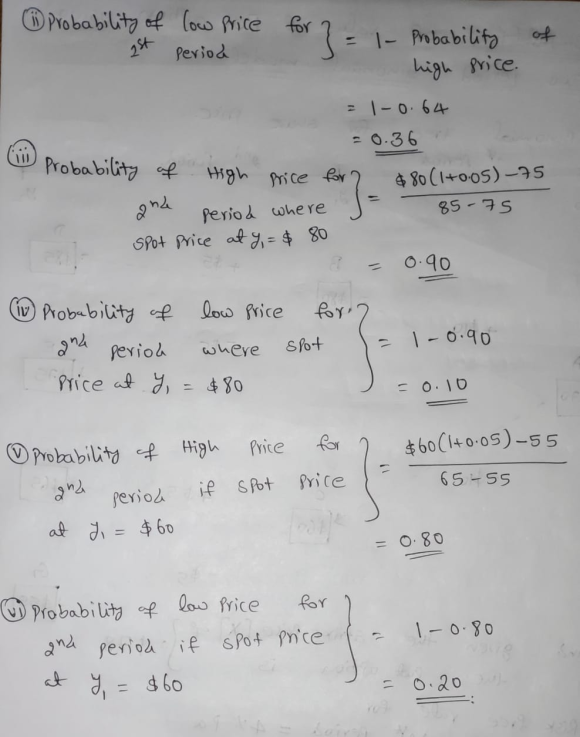 (ii) Probability of low price for } = 1 - Probability of
1st period high price.
= 1 - 0.64
= 0.36
(iii) Probability of High price for } = $80(1+0.05) - 75
2nd period where 85 - 75
spot price at y₁ = $ 80
= 0.90
(iv) Probability of low price for } = 1 - 0.90
2nd period where spot
price at y₁ = $80 = 0.10
(v) Probability of High price for } = $60(1+0.05) - 55
2nd period if spot price 65 - 55
at y₁ = $60
= 0.80
(vi) Probability of low price for } = 1 - 0.80
2nd period if spot price
at y₁ = $60 = 0.20